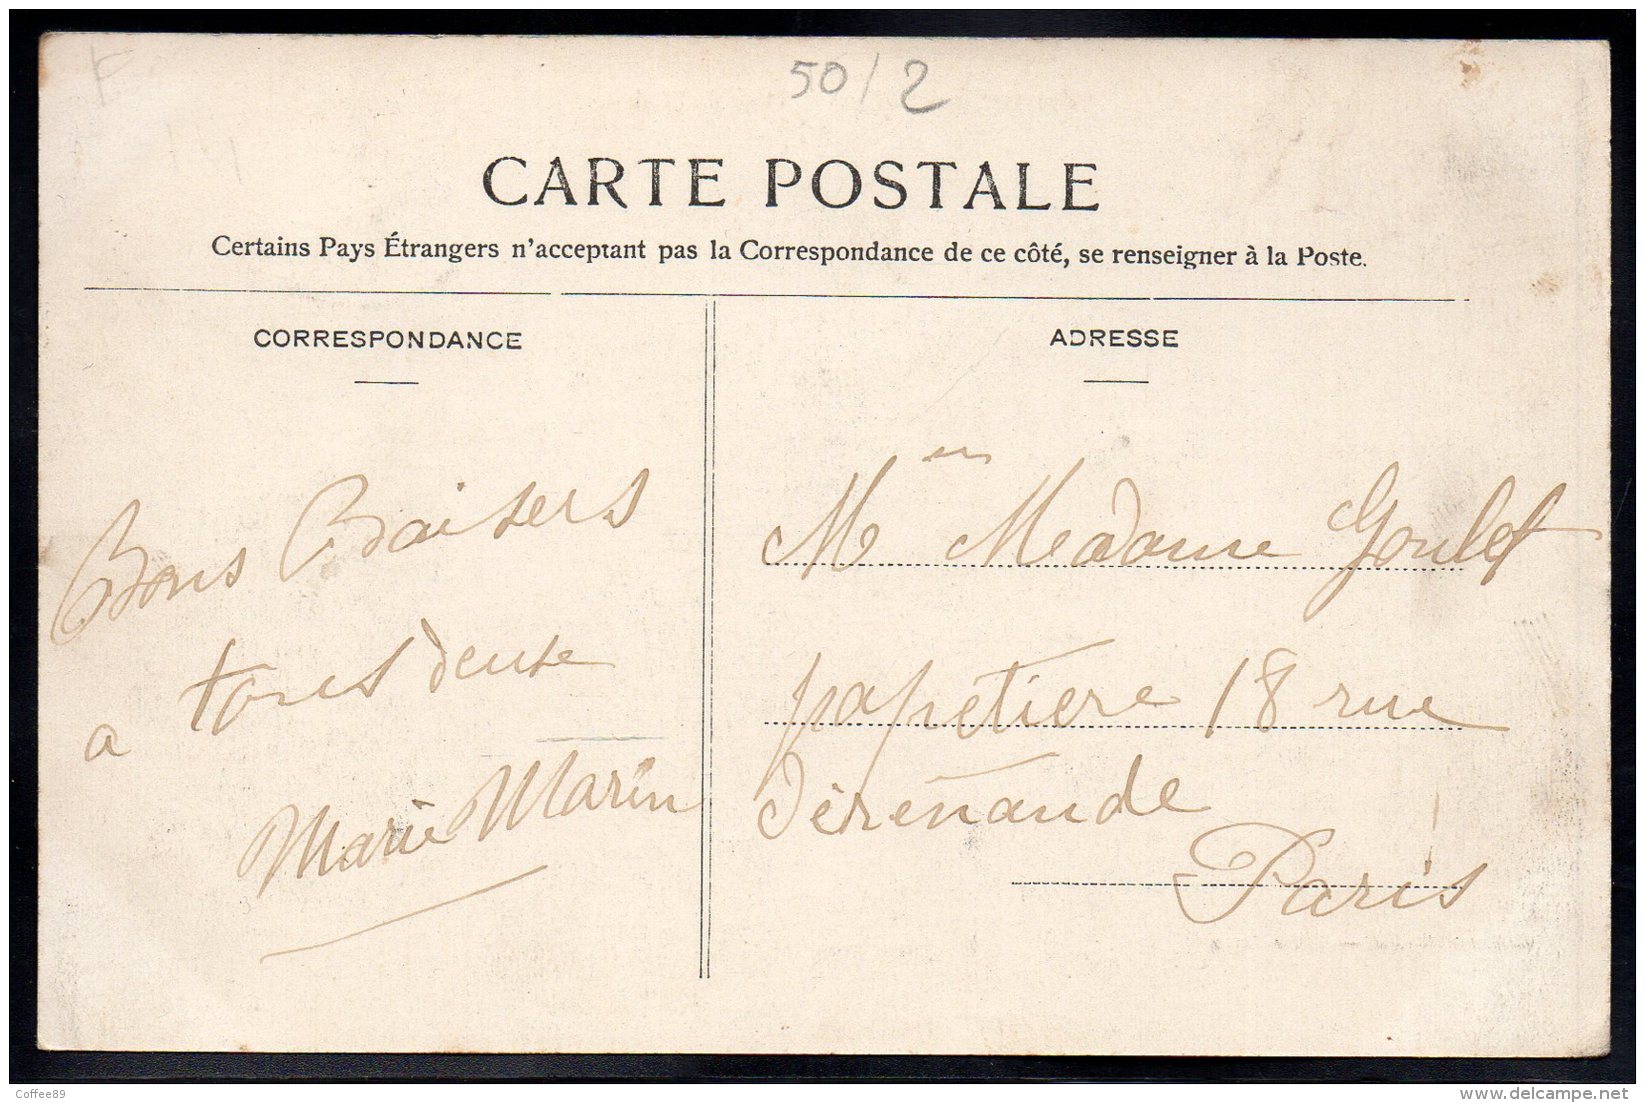 50/2
CARTE POSTALE
Certains Pays Étrangers n'acceptant pas la Correspondance de ce côté, se renseigner à la Poste.
CORRESPONDANCE
Bons Baisers
a tous deux
Marie Marin
ADRESSE
Madame Goulet
papetière 18 rue
Paris
Coffee89
www.delcampe.net